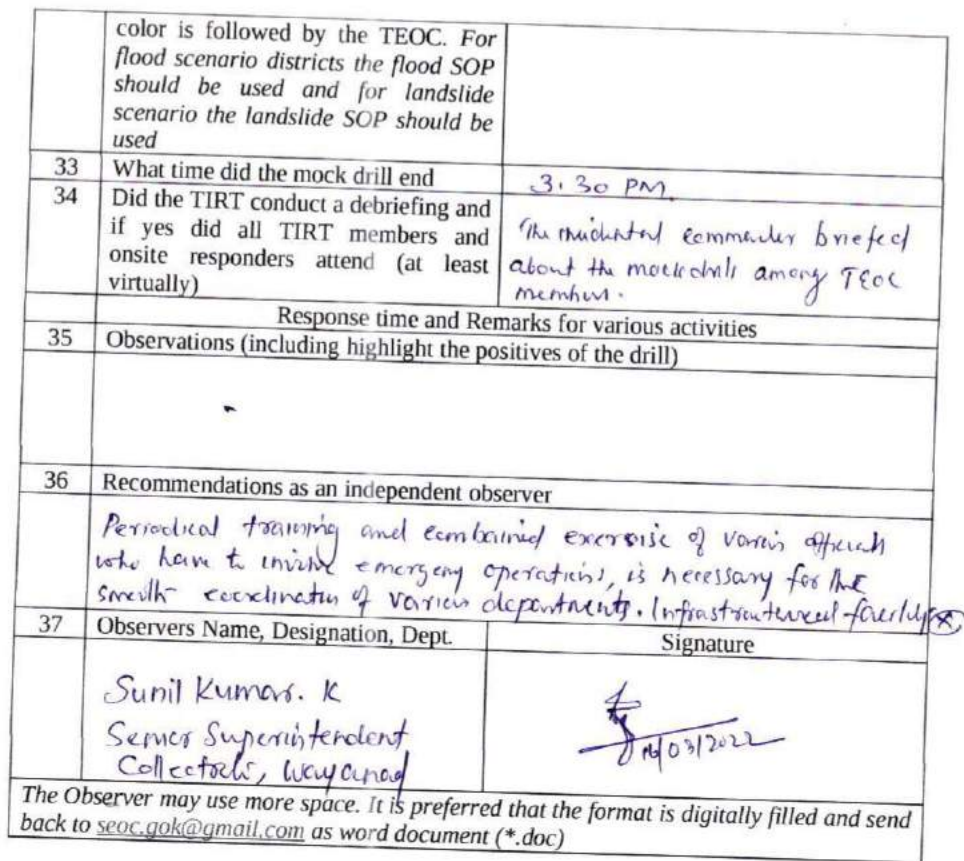 color is followed by the TEOC. For
flood scenario districts the flood SOP
should be used and for landslide
scenario the landslide SOP should be
used
33 What time did the mock drill end 3.30 PM.
34 Did the TIRT conduct a debriefing and
if yes did all TIRT members and
onsite responders attend (at least
virtually)
The commander briefed
about the mockdrill among TEOC
members.
Response time and Remarks for various activities
35 Observations (including highlight the positives of the drill)
36 Recommendations as an independent observer
Periodical training and combained exercise of various officials
who have to emergeny operations, is necessary for the
smooth coordination of various departments. Infrastructureal
37 Observers Name, Designation, Dept. Signature
Sunil Kumar. K
Senior Superintendent
Wayanad
/03/2022
The Observer may use more space. It is preferred that the format is digitally filled and send
back to seoc.gok@gmail.com as word document (*.doc)